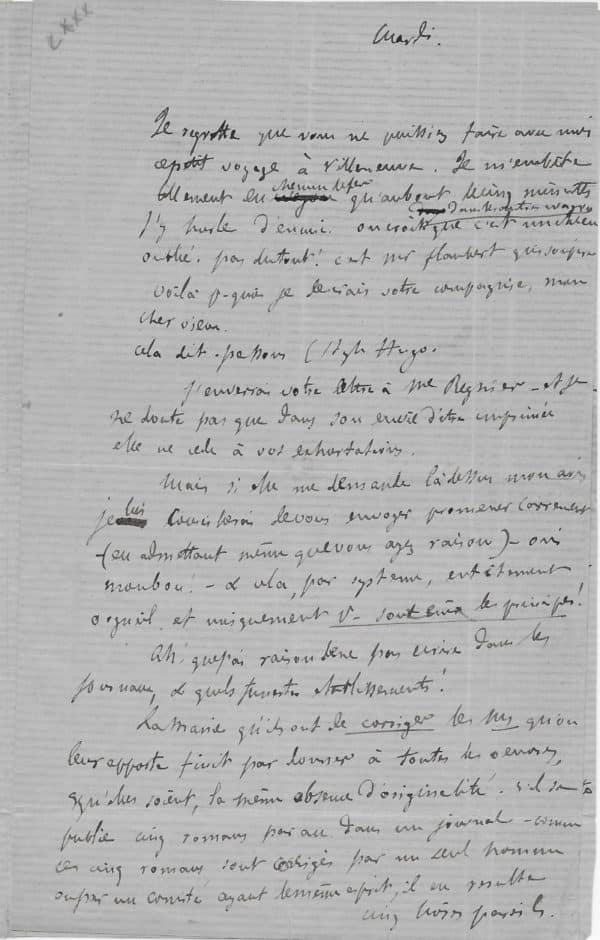 LXXX
Mardi.
Je regrette que vous ne puissiez faire avec moi
ce petit voyage à Villeneuve. Je m'embête
tellement en chemin de fer qu'au bout de cinq minutes
j'y hurle d'ennui. On croit dans les autres wagons que c'est un chien
oublié. pas du tout! c'est mr flaubert qui soupire
voilà p-quoi je désirais votre compagnie, mon
cher vieux.
cela dit. passons (Style Hugo.
J'enverrai votre lettre à Me Regnier - et je
ne doute pas que dans son envie d'être imprimée
elle ne cède à vos exhortations.
Mais si elle me demande là-dessus mon avis
je lui conseillerai de vous envoyer promener carrément
- (en admettant même que vous ayez raison) - oui
mon bon! - & cela, par système, entêtement
orgueil et uniquement p- soutenir les principes!
Ah! que j'ai raison de ne pas écrire dans les
journaux, & quels funestes établissements!
La manie qu'ils ont de corriger les mss qu'on
leur apporte finit par donner à toutes les œuvres,
qu'elles soient, la même absence d'originalité. s'il se
publie cinq romans par an dans un journal - comme
ces cinq romans sont corrigés par un seul homme
ou par un comité ayant le même esprit, il en résulte
cinq livres pareils.